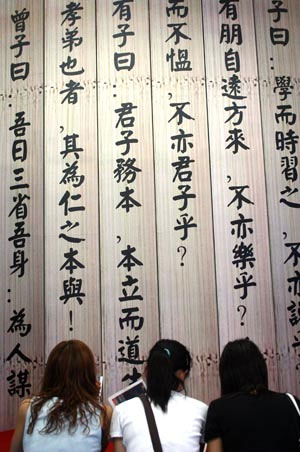 子曰:學而時習之,不亦說
有朋自遠方來,不亦樂乎?
而不慍,不亦君子乎?
有子曰:君子務本,本立而道
孝弟也者,其為仁之本與!
曾子曰:吾日三省吾身:為人謀